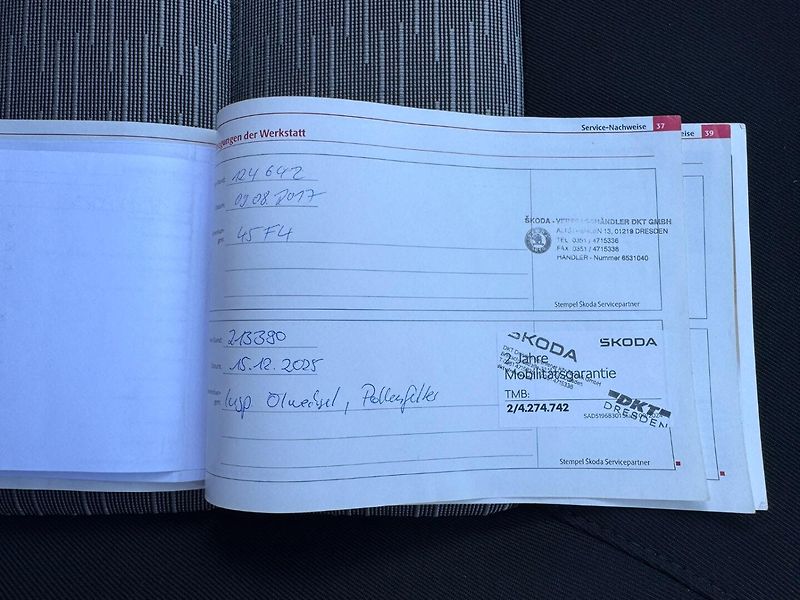 Service-Nachweise 37
eise 39
gungen der Werkstatt
124 642
09.08.2017
45 F4
ŠKODA - VERTRAGSHÄNDLER DKT GMBH
13, 01219 DRESDEN
TEL. 0351 / 4715336
FAX. 0351 / 4715338
HÄNDLER - Nummer 6531040
Stempel Škoda Servicepartner
213390
15.12.2025
Insp Ölwechsel, Pollenfilter
ŠKODA
ŠKODA
2 Jahre
Mobilitätsgarantie
TMB:
2/4.274.742
DKT
DRESDEN
Stempel Škoda Servicepartner